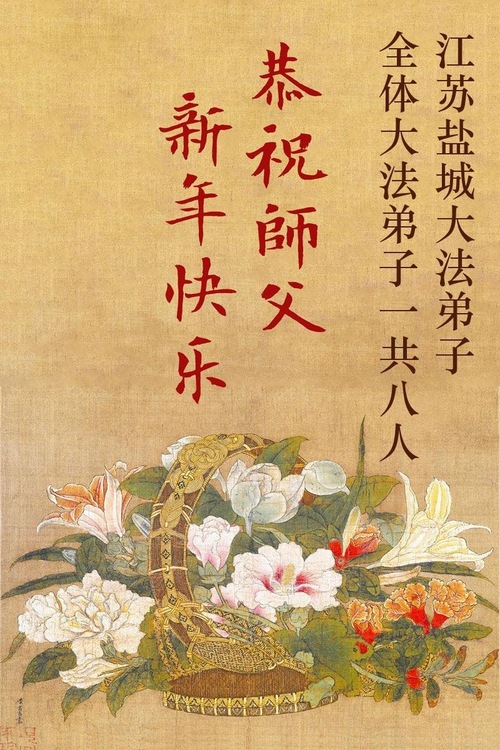 江苏盐城大法弟子
全体大法弟子 一共八人
恭祝師父
新年快乐